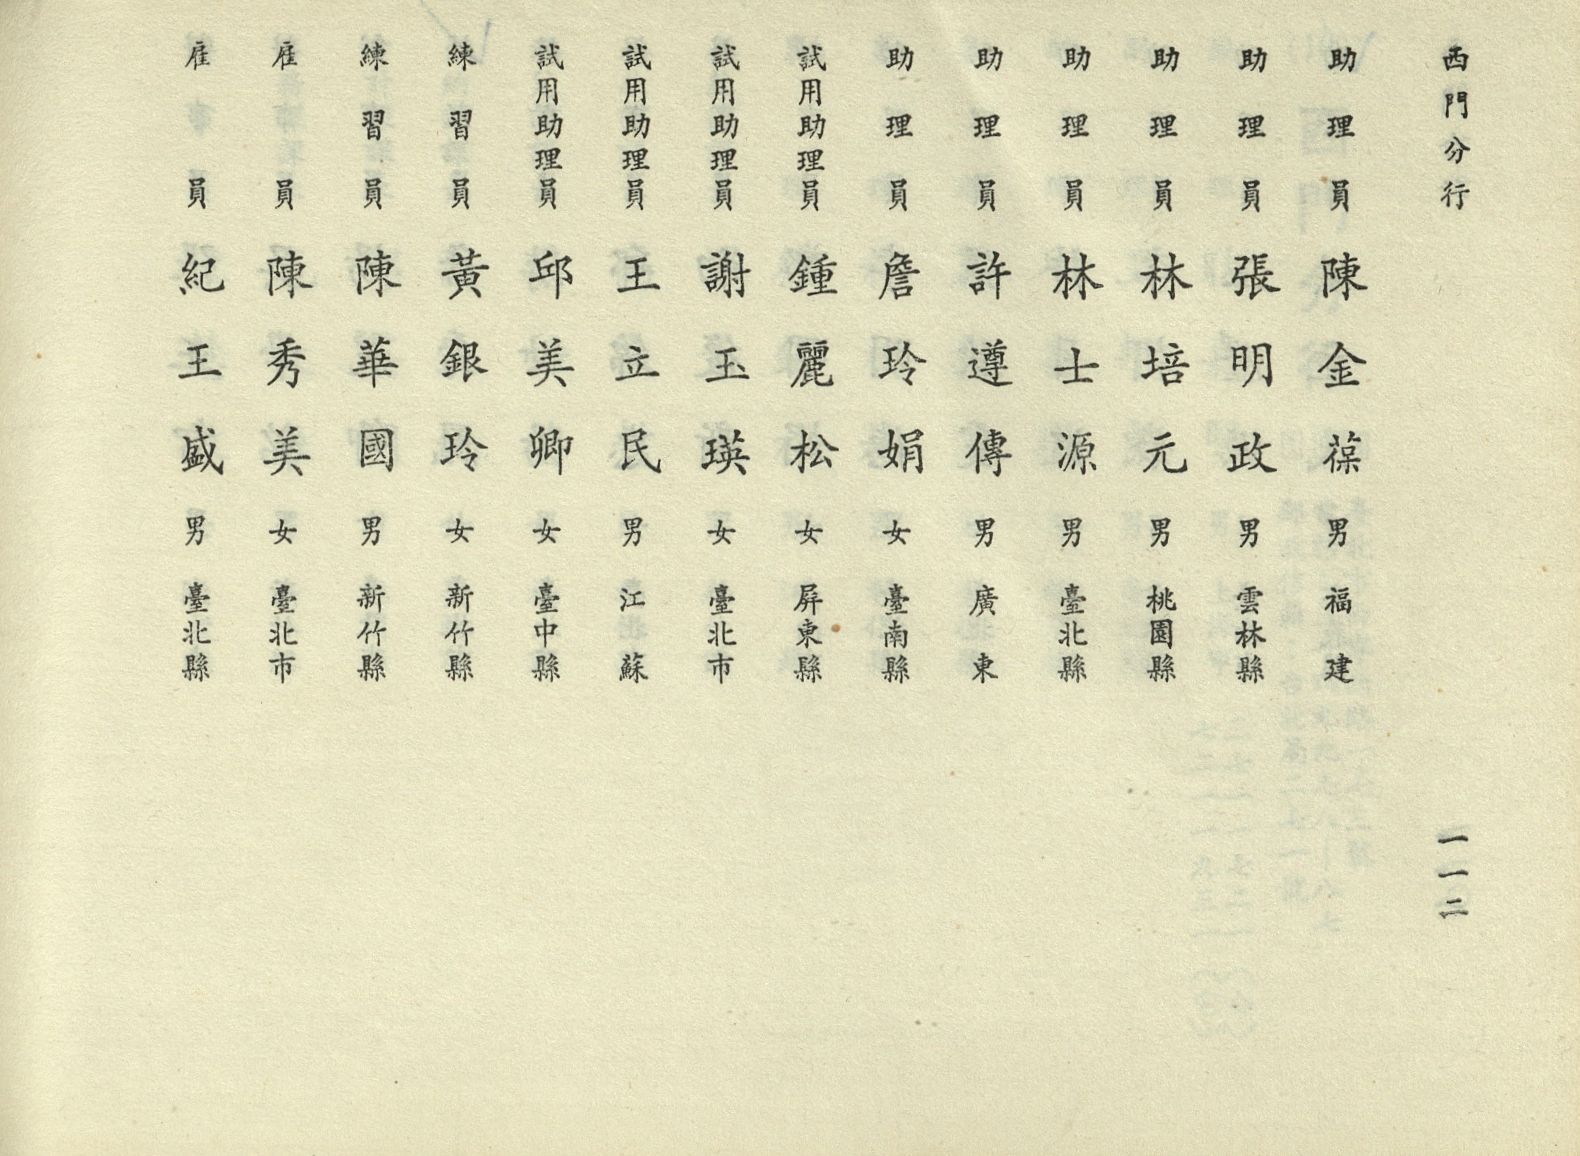 西門分行
一一二
助理員 陳金葆 男 福建
助理員 張明政 男 雲林縣
助理員 林培元 男 桃園縣
助理員 林士源 男 臺北縣
助理員 許遵傳 男 廣東
助理員 詹玲娟 女 臺南縣
試用助理員 鍾麗松 女 屏東縣
試用助理員 謝玉瑛 女 臺北市
試用助理員 王立民 男 江蘇
試用助理員 邱美卿 女 臺中縣
練習員 黃銀玲 女 新竹縣
練習員 陳華國 男 新竹縣
雇員 陳秀美 女 臺北市
雇員 紀王盛 男 臺北縣